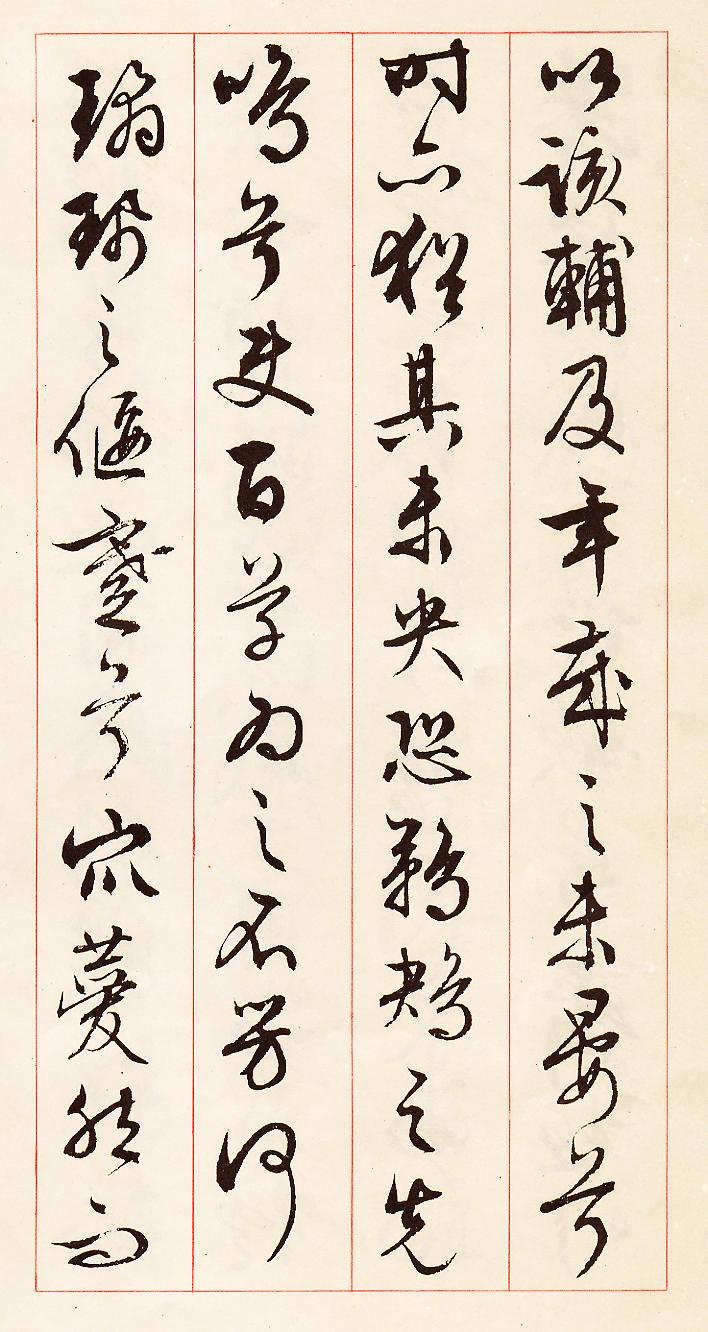 以该輔及年歲之未晏兮
时亦猶其未央恐鹈鴂之先
鳴兮使百草為之不芳何
瓊珮之偃蹇兮众薆然而